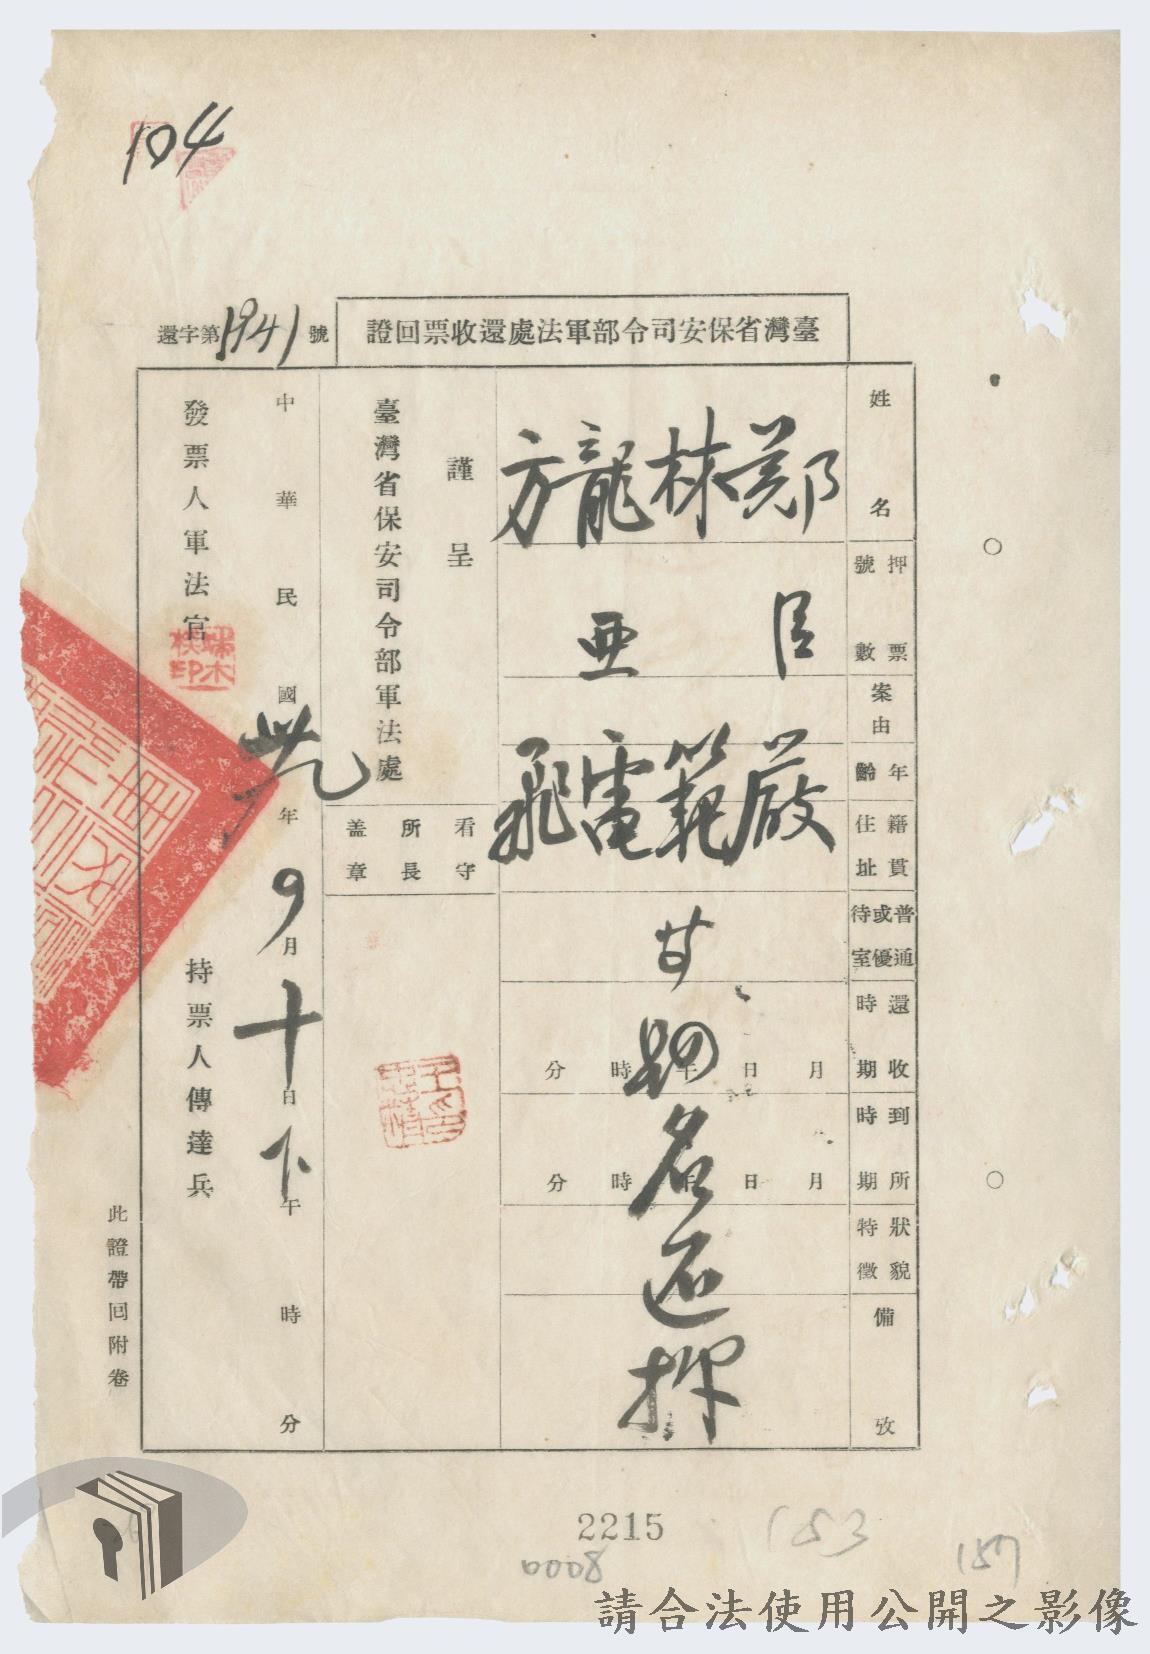 104
臺灣省保安司令部軍法處還收票回證
還字第1941號
姓名
押票號數
案由
年齡
籍貫住址
普通或優待室
還收時期
到所時期
狀貌特徵
備攷
鄭臣嚴
林範
龍亞電
方飛
廿四名還押
月日年時分
月日年時分
謹呈
臺灣省保安司令部軍法處
看守所長盖章
中華民國卅九年9月十日下午時分
發票人軍法官
持票人傳達兵
此證帶回附卷
2215
0008
153
157
請合法使用公開之影像